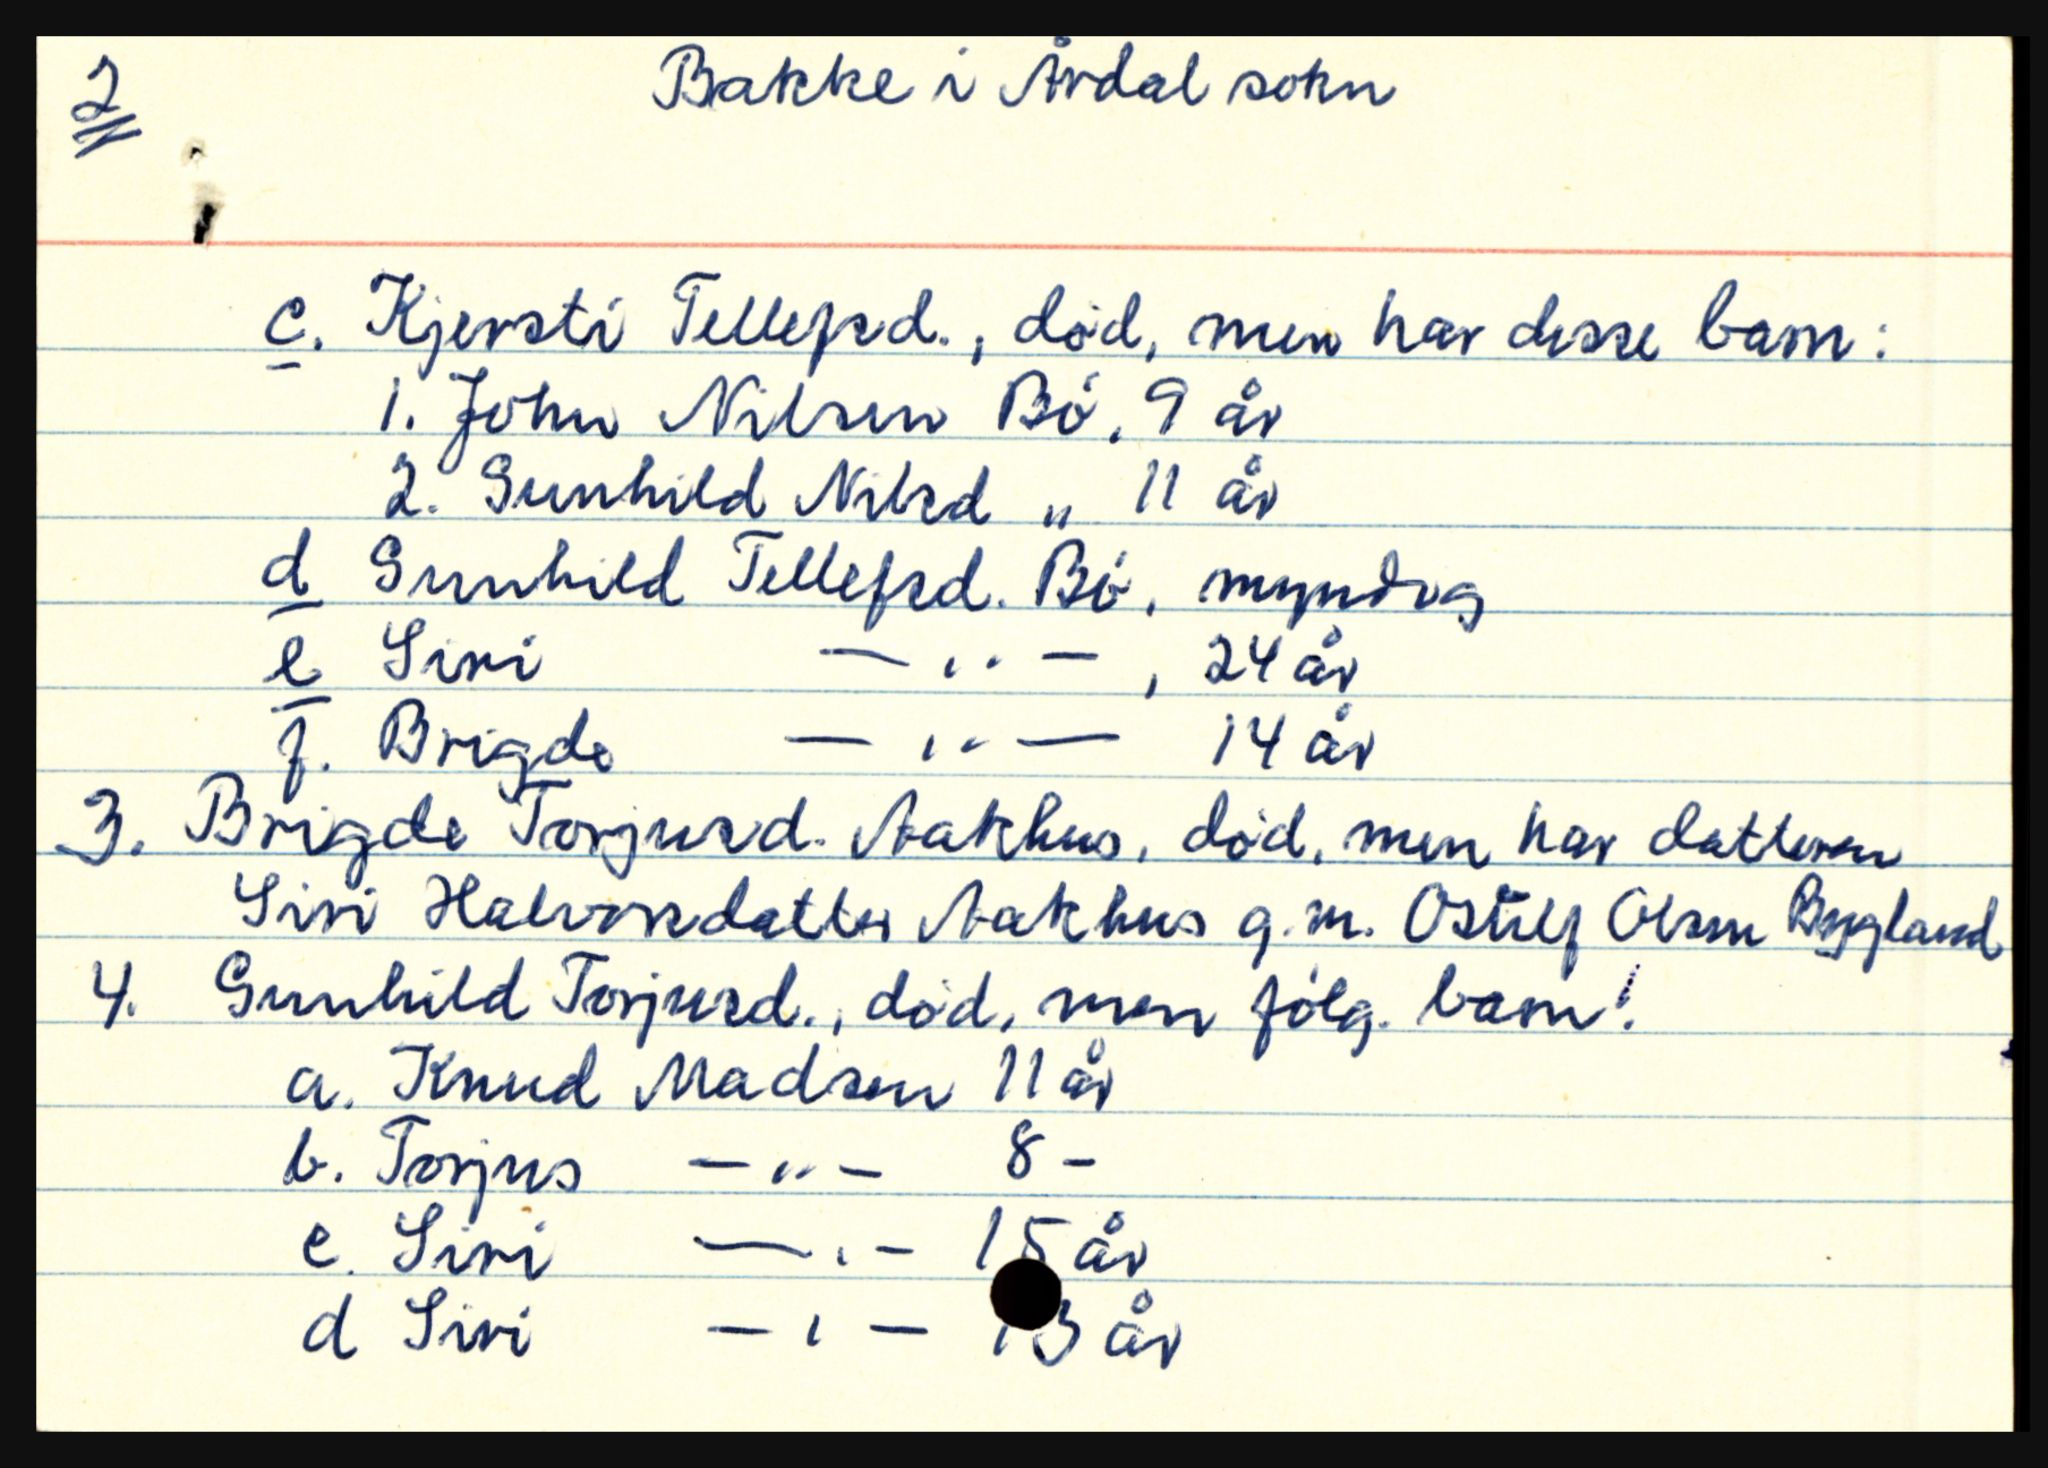 2
Bakke i Årdal sokn
c. Kjersti Tellefsd., død, men har disse barn:
1. John Nilsen Bö, 9 år
2. Gunhild Nilsd „ 11 år
d Gunhild Tellefsd. Bö, myndig
e Siri — „ — , 24 år
f. Brigde — „ — 14 år
3. Brigde Torjusd. Aakhus, død, men har datteren
Siri Halvorsdatter Aakhus g.m. Ostulf Olsen Bygland
4. Gunhild Torjusd., död, men fölg. barn:
a. Knud Madsen 11 år
b. Torjus — „ — 8 -
c. Siri — „ — 15 år
d Siri — „ — 13 år